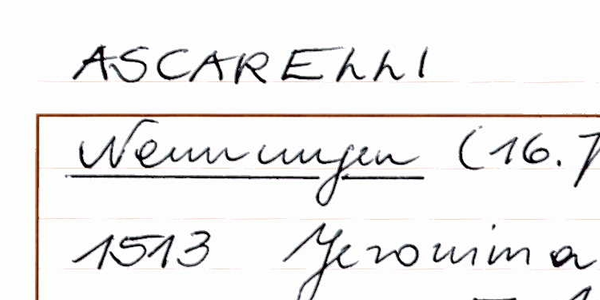 ASCARELLI
Nennungen (16.
1513 Jeronima